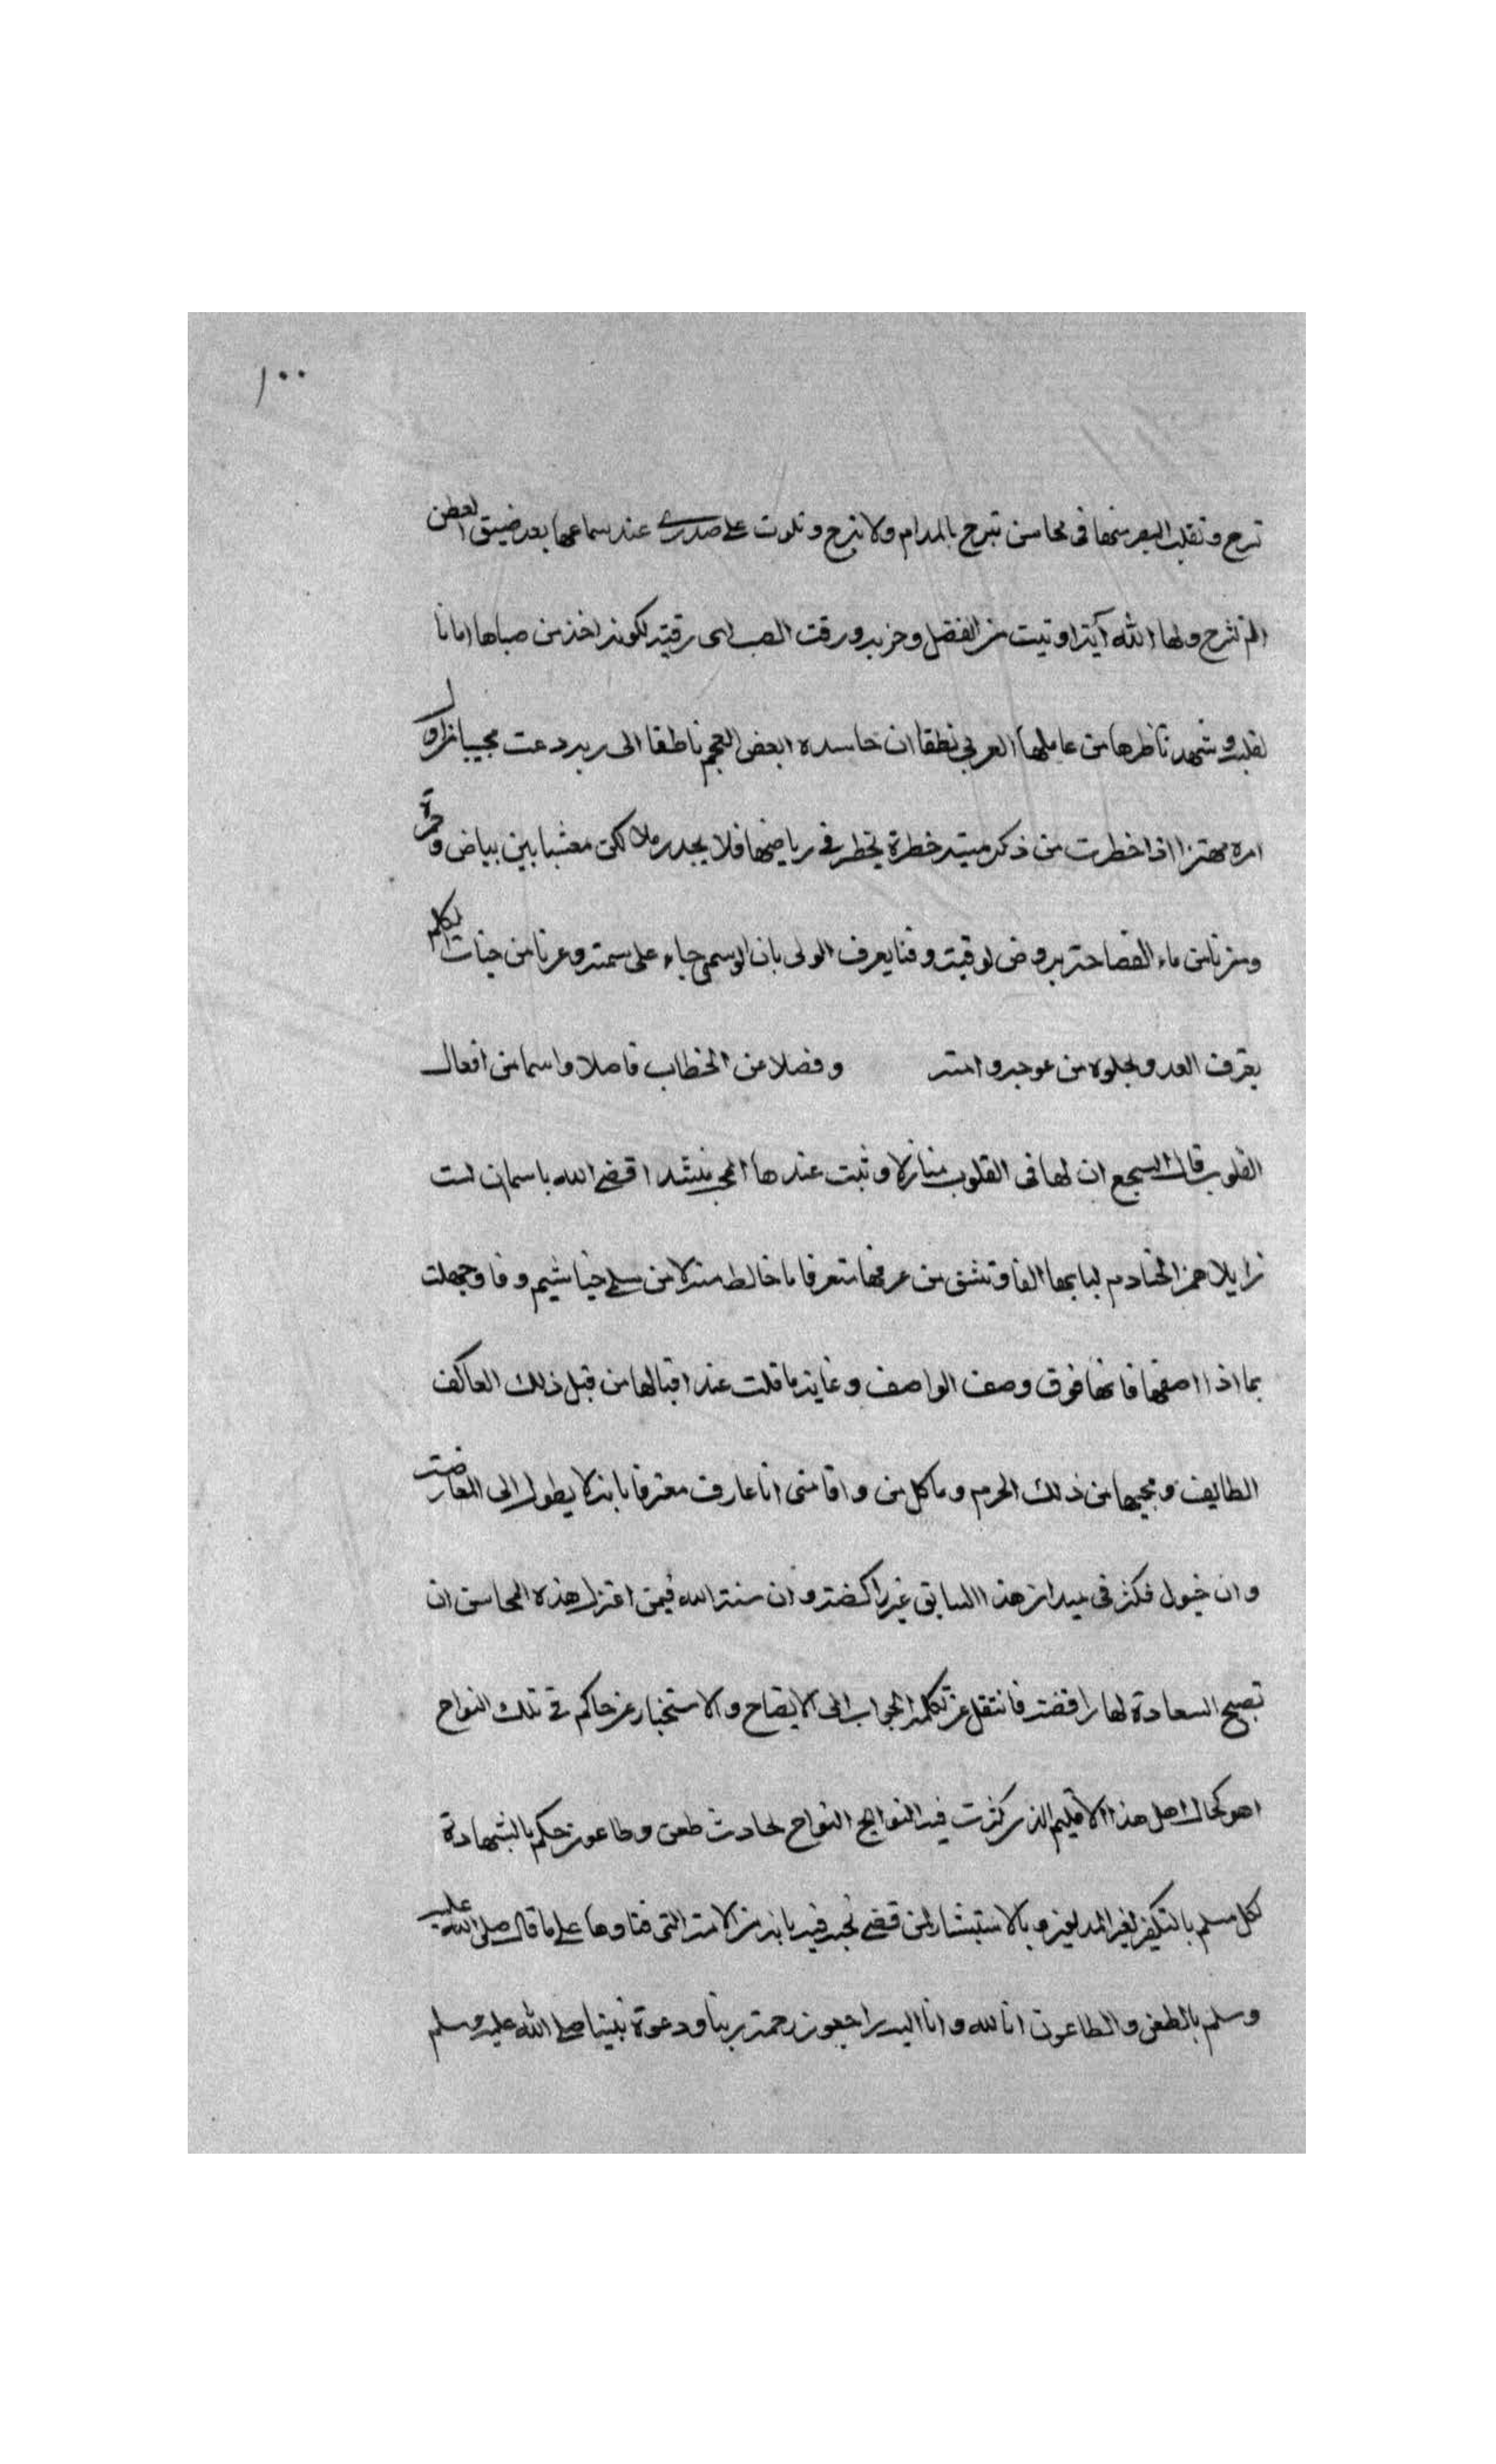 ١٠٠
تبرح وتقلب البصر منها فى محاسن تبرح بالمدام ولا تبرح وتلوت على صدرى عند سماعها بعد ضيق العطن
الم نشرح ولها الله آية اوتيت من الفضل وحزبه ورقت الصب اى رقية لكونه اخذ من صباها امانا
لقلبه وشهد ناظرها من عاملها العربى نطقا ان حاسده ابعض العجم ناطقا الى ربه دعت مجيبا نزلا
امره مهتزا اذا خطرت من ذكر ميته خطرة يخطر فى رياضها فلا يجد رملا لكن معشبا بين بياض وحمرة
ومزنا من ماء الفصاحة بروض لوقيته وقنا يعرف الولى بان الوسمى جاء على سمته وعرنا من جنات الكلم
يعترف العدو بخلوه من عوجه وامته وفضلا عن الخطاب فاصلا واسما من افعال
القلوب قال السجع ان لها فى القلوب منازلا وثبت عندها المحب ينشد اقضى الله يا سمائ لست
زايلا همز الخادم لبابها الفا وتنشق من عرفها متعرفا ما خالط منزلا من سلمى خياشيم وفا وجهلت
بما اذا اصفها فانها فوق وصف الواصف وغاية ما قلت عند اقبالها من قبل ذلك العاكف
الطايف ومجيها من ذلك الحرم وما كل من وافا منى انا عارف معترفا بانه لا يطول الى المعارضة
وان خيول فكره فى ميدان هذا السابق غير راكضة وان سنة الله فيمن اعتزل هذه المحاسن ان
تصبح السعادة لها رافضة فانتقل عن تكلمه الجواب الى الايضاح والاستخبار عن حاكم فى تلك النواح
اهو كحال اهل هذا الاقليم الذى كثرت فيه النوايح النواح لحادث طعن وطاعون حكم بالشهادة
لكل مسلم بالتكفير لغير المدلعين وبالاستبشار لمن قضى نحبه فيه بانه من الامة التى فناوها على ما قال صلى الله عليه
وسلم بالطعن والطاعون انا لله وانا اليه راجعون رحمة ربنا ودعوة نبينا صلى الله عليه وسلم